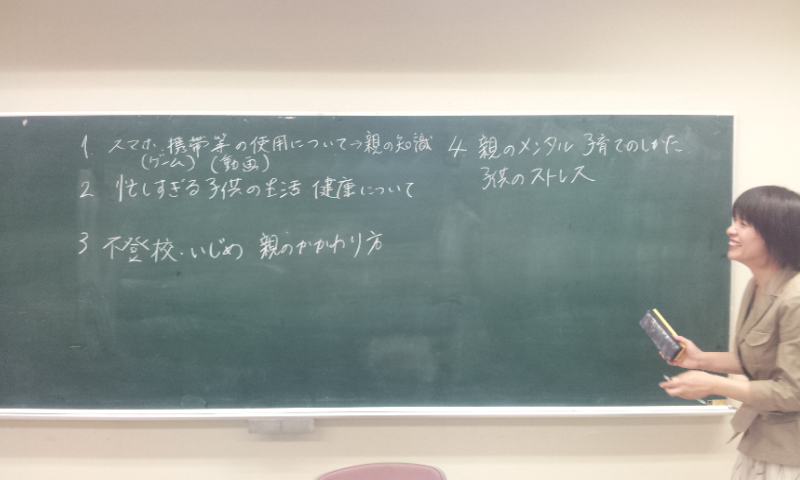 1. スマホ 携帯等の使用について→親の知識
(ゲーム)(動画)
2 忙しすぎる子供の生活 健康について
3 不登校・いじめ 親のかかわり方
4 親のメンタル 子育てのしかた
子供のストレス